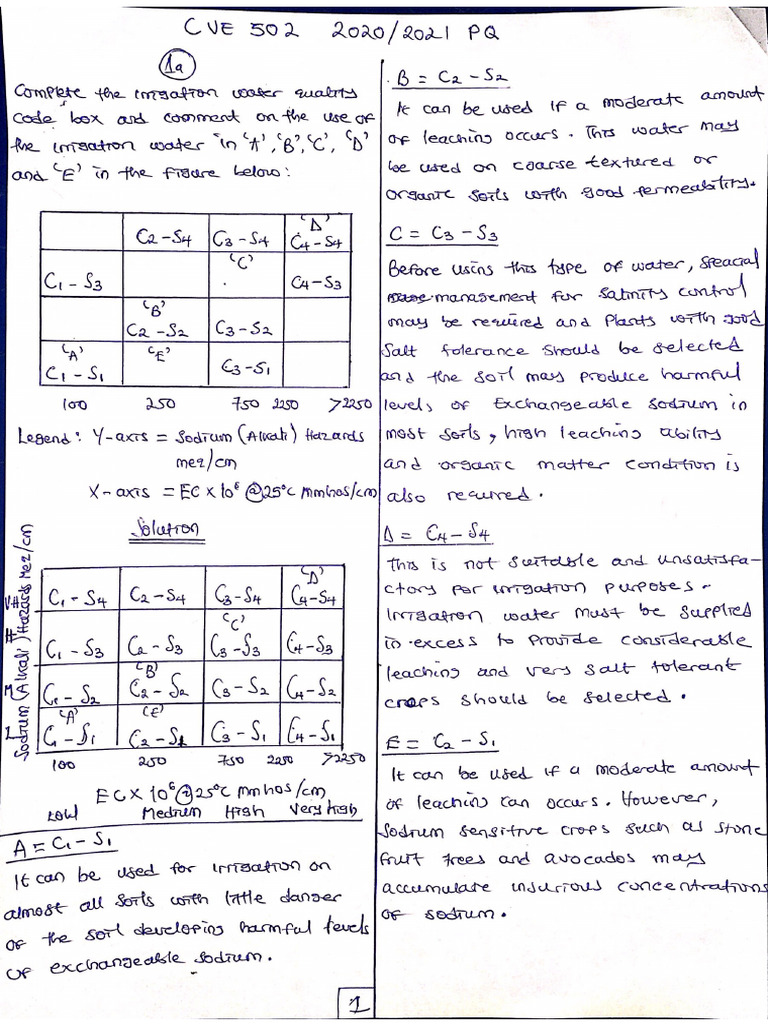 CVE 502 2020/2021 PQ
1a
Complete the irrigation water quality
code box and comment on the use of
the irrigation water in 'A', 'B', 'C', 'D'
and 'E' in the figure below:
'D'
C2-S4 C3-S4 C4-S4
'C'
C1-S3 C4-S3
'B'
C2-S2 C3-S2
'A' 'E'
C1-S1 C3-S1
100 250 750 2250 >2250
Legend: Y-axis = Sodium (Alkali) Hazards
meq/cm
X-axis = EC x 10⁶ @25°C mmhos/cm
Solution
Sodium (Alkali) Hazards meq/cm
'D'
C1-S4 C2-S4 C3-S4 C4-S4
'C'
C1-S3 C2-S3 C3-S3 C4-S3
'B'
C1-S2 C2-S2 C3-S2 C4-S2
'A' 'E'
C1-S1 C2-S1 C3-S1 C4-S1
100 250 750 2250 >2250
EC x 10⁶ @25°C mmhos/cm
Low Medium High Very high
A = C1-S1
It can be used for irrigation on
almost all soils with little danger
of the soil developing harmful levels
of exchangeable sodium.
B = C2-S2
It can be used if a moderate amount
of leaching occurs. This water may
be used on coarse textured or
organic soils with good permeability.
C = C3-S3
Before using this type of water, special
management for salinity control
may be required and plants with good
salt tolerance should be selected
and the soil may produce harmful
levels of exchangeable sodium in
most soils, high leaching ability
and organic matter condition is
also required.
D = C4-S4
This is not suitable and unsatisfa-
ctory for irrigation purposes.
Irrigation water must be supplied
in excess to provide considerable
leaching and very salt tolerant
crops should be selected.
E = C2-S1
It can be used if a moderate amount
of leaching can occurs. However,
sodium sensitive crops such as stone
fruit trees and avocados may
accumulate injurious concentrations
of sodium.
1